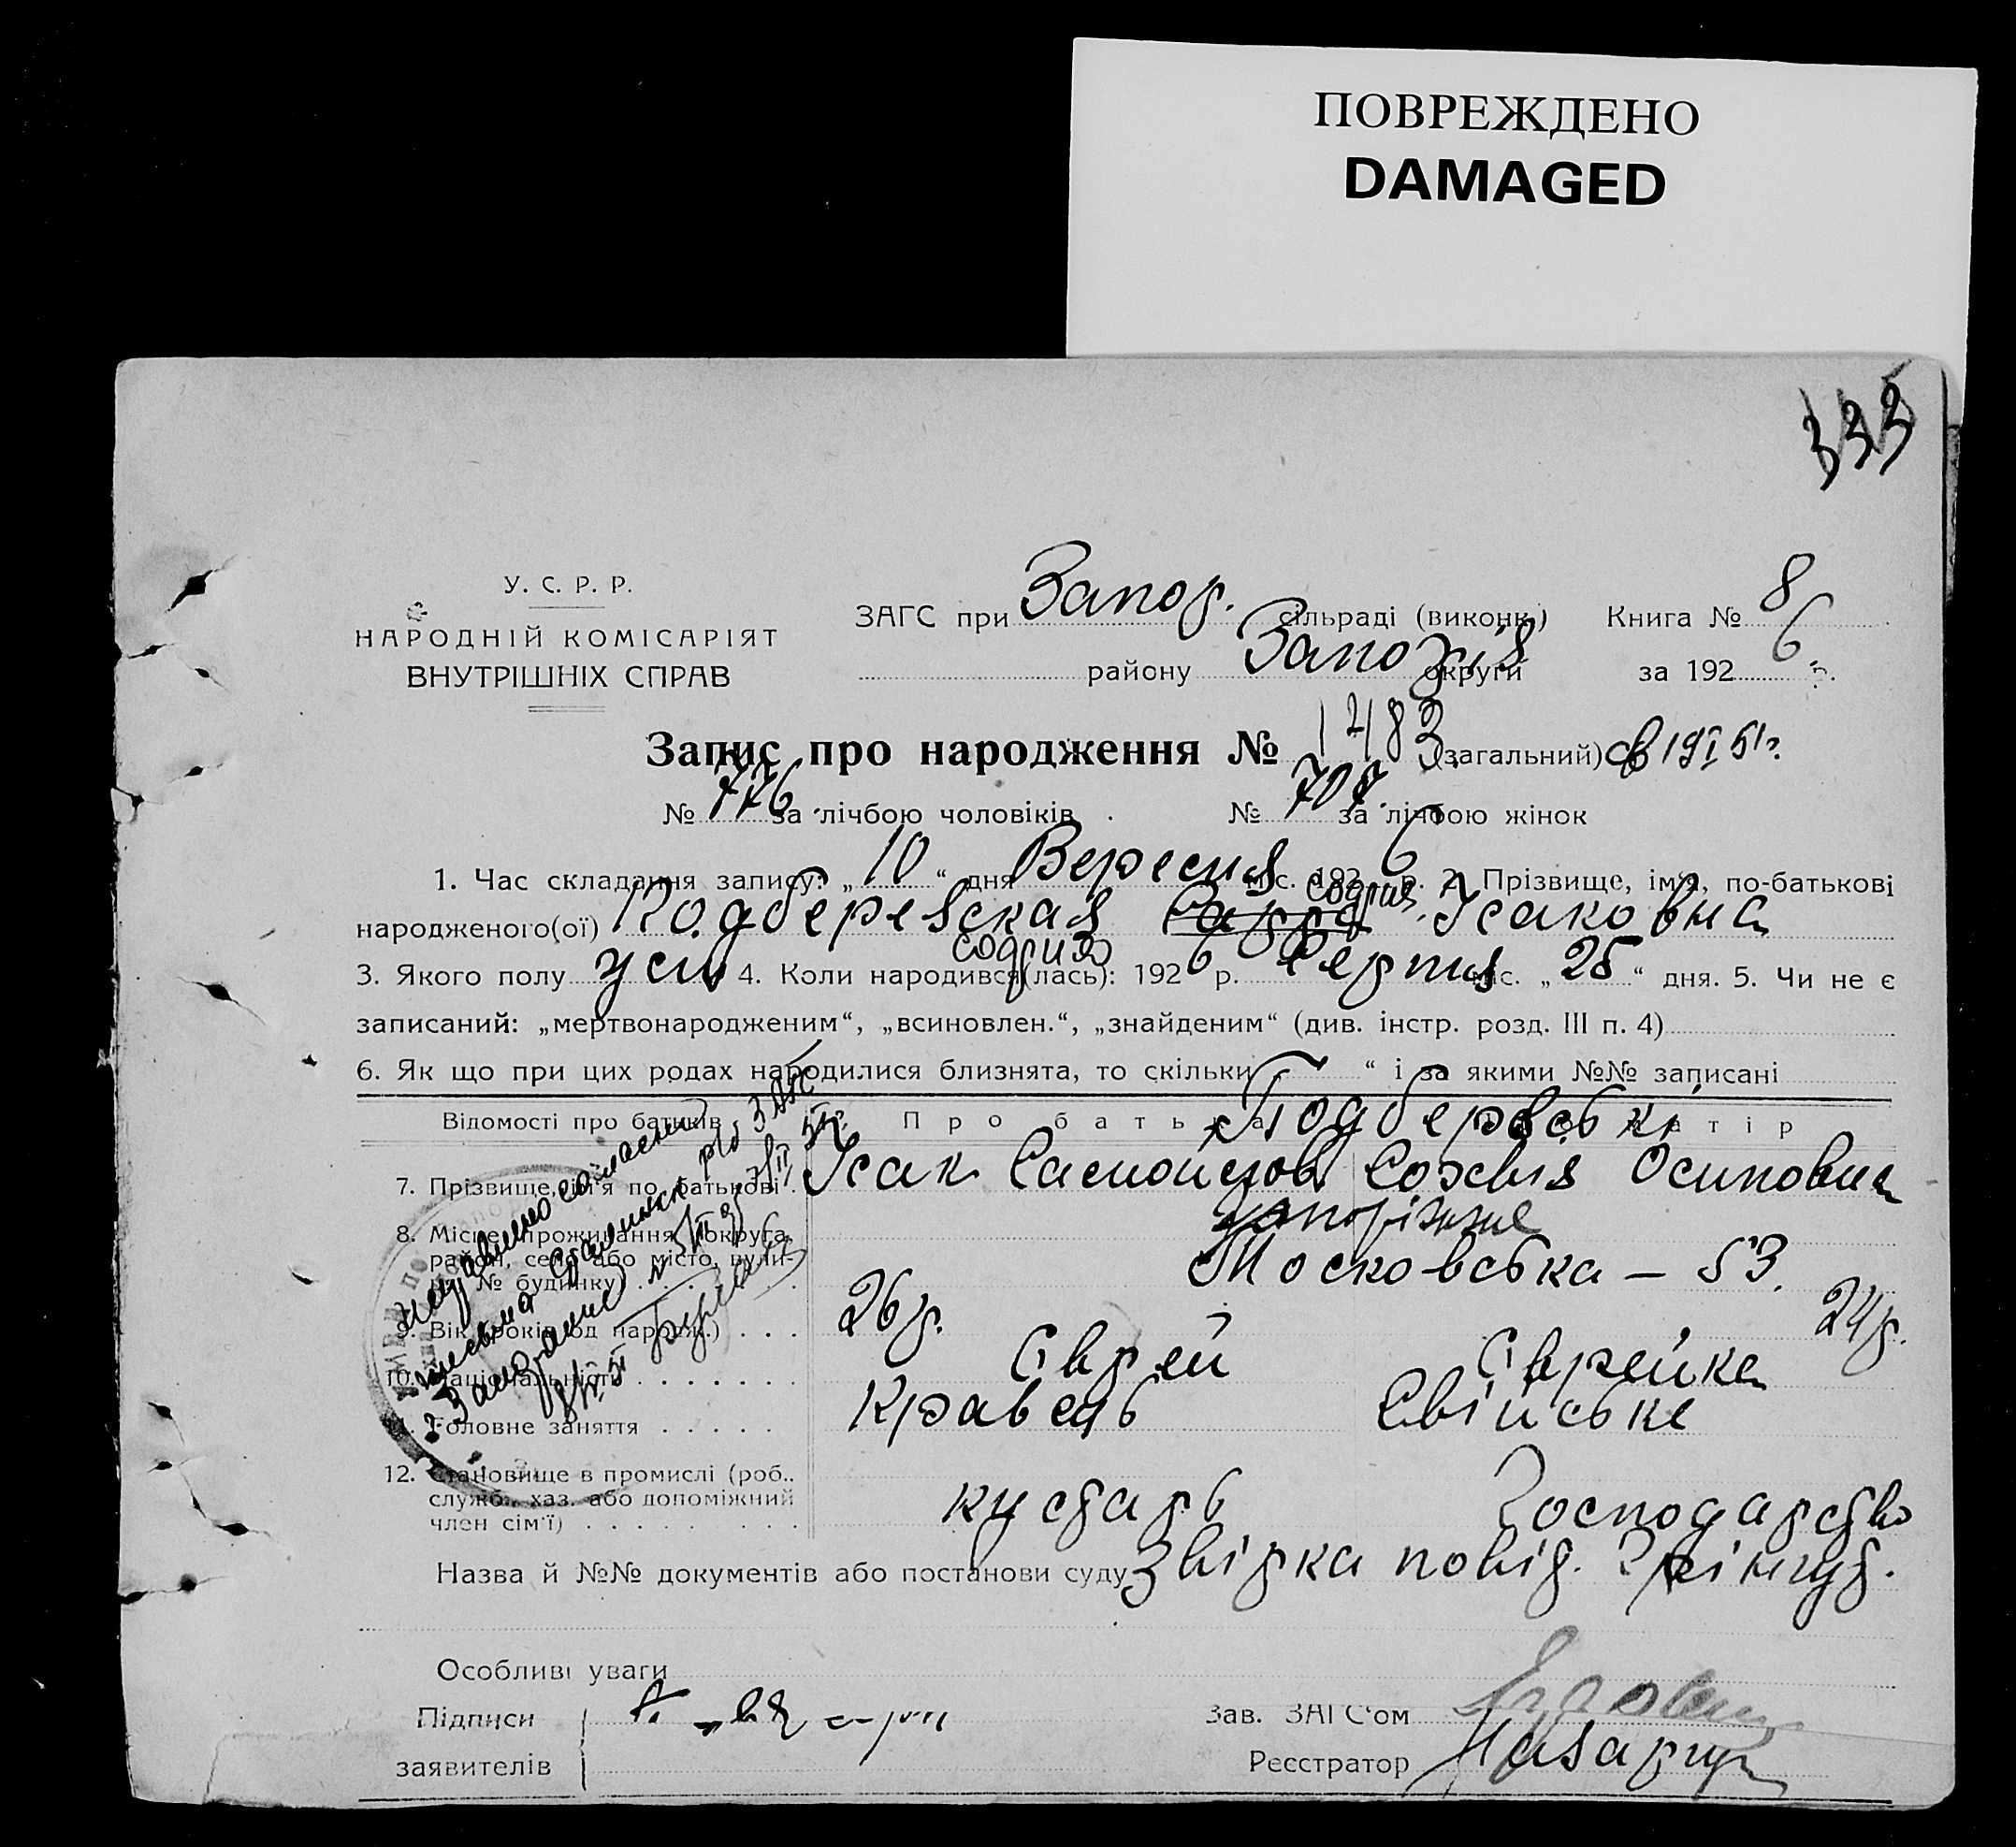 ПОВРЕЖДЕНО
DAMAGED
333
У. С. Р. Р.
НАРОДНІЙ КОМІСАРІЯТ
ВНУТРІШНІХ СПРАВ
ЗАГС при Запор. сільраді (виконк.) Книга № 8
району Запоріз округи за 192 6 р.
Запис про народження № 1483 (загальний) св 19 I 51 г.
№ 776 за лічбою чоловіків. № 707 за лічбою жінок
1. Час складання запису: „ 10 “ дня Вересня міс. 192 6 р. 2. Прізвище, ім'я, по-батькові
София
народженого(ої) Подберезская Сарра Исаковна
София
3. Якого полу жін 4. Коли народився(лась): 192 6 р. Серпня міс. „ 25 “ дня. 5. Чи не є
записаний: „мертвонародженим“, „всиновлен.“, „знайденим“ (див. інстр. розд. III п. 4)
6. Як що при цих родах народилися близнята, то скільки “ і за якими №№ записані
Відомості про батьків Про батька Про матір
7. Прізвище, ім'я по батькові Ісак Самойлов Софія Осиповна
8. Місце проживання (округа, район, село або місто, вулиця, № будинку) Запоріжжє
Московська – 53.
9. Вік (років од народж.) 26 р. 24 р.
10. Національність Єврей Єврейка
11. Головне заняття Кравець Свійське
12. Становище в промислі (роб., служб., хаз. або допоміжний член сім'ї) кустарь Господарство
Назва й №№ документів або постанови суду Звірка повід.
Особливі уваги
Підписи заявителів
Зав. ЗАГС'ом
Реєстратор